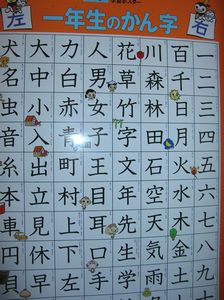 学習ポスター
左
一年生のかん字
右
一二三四五六七八九
百千日月火水木金土
川森林田石空天気雨
花草竹字文年先生学
人男女子王目耳口手
力白赤青町村上下左
大中小入出立見休早
犬名虫音糸本車貝円